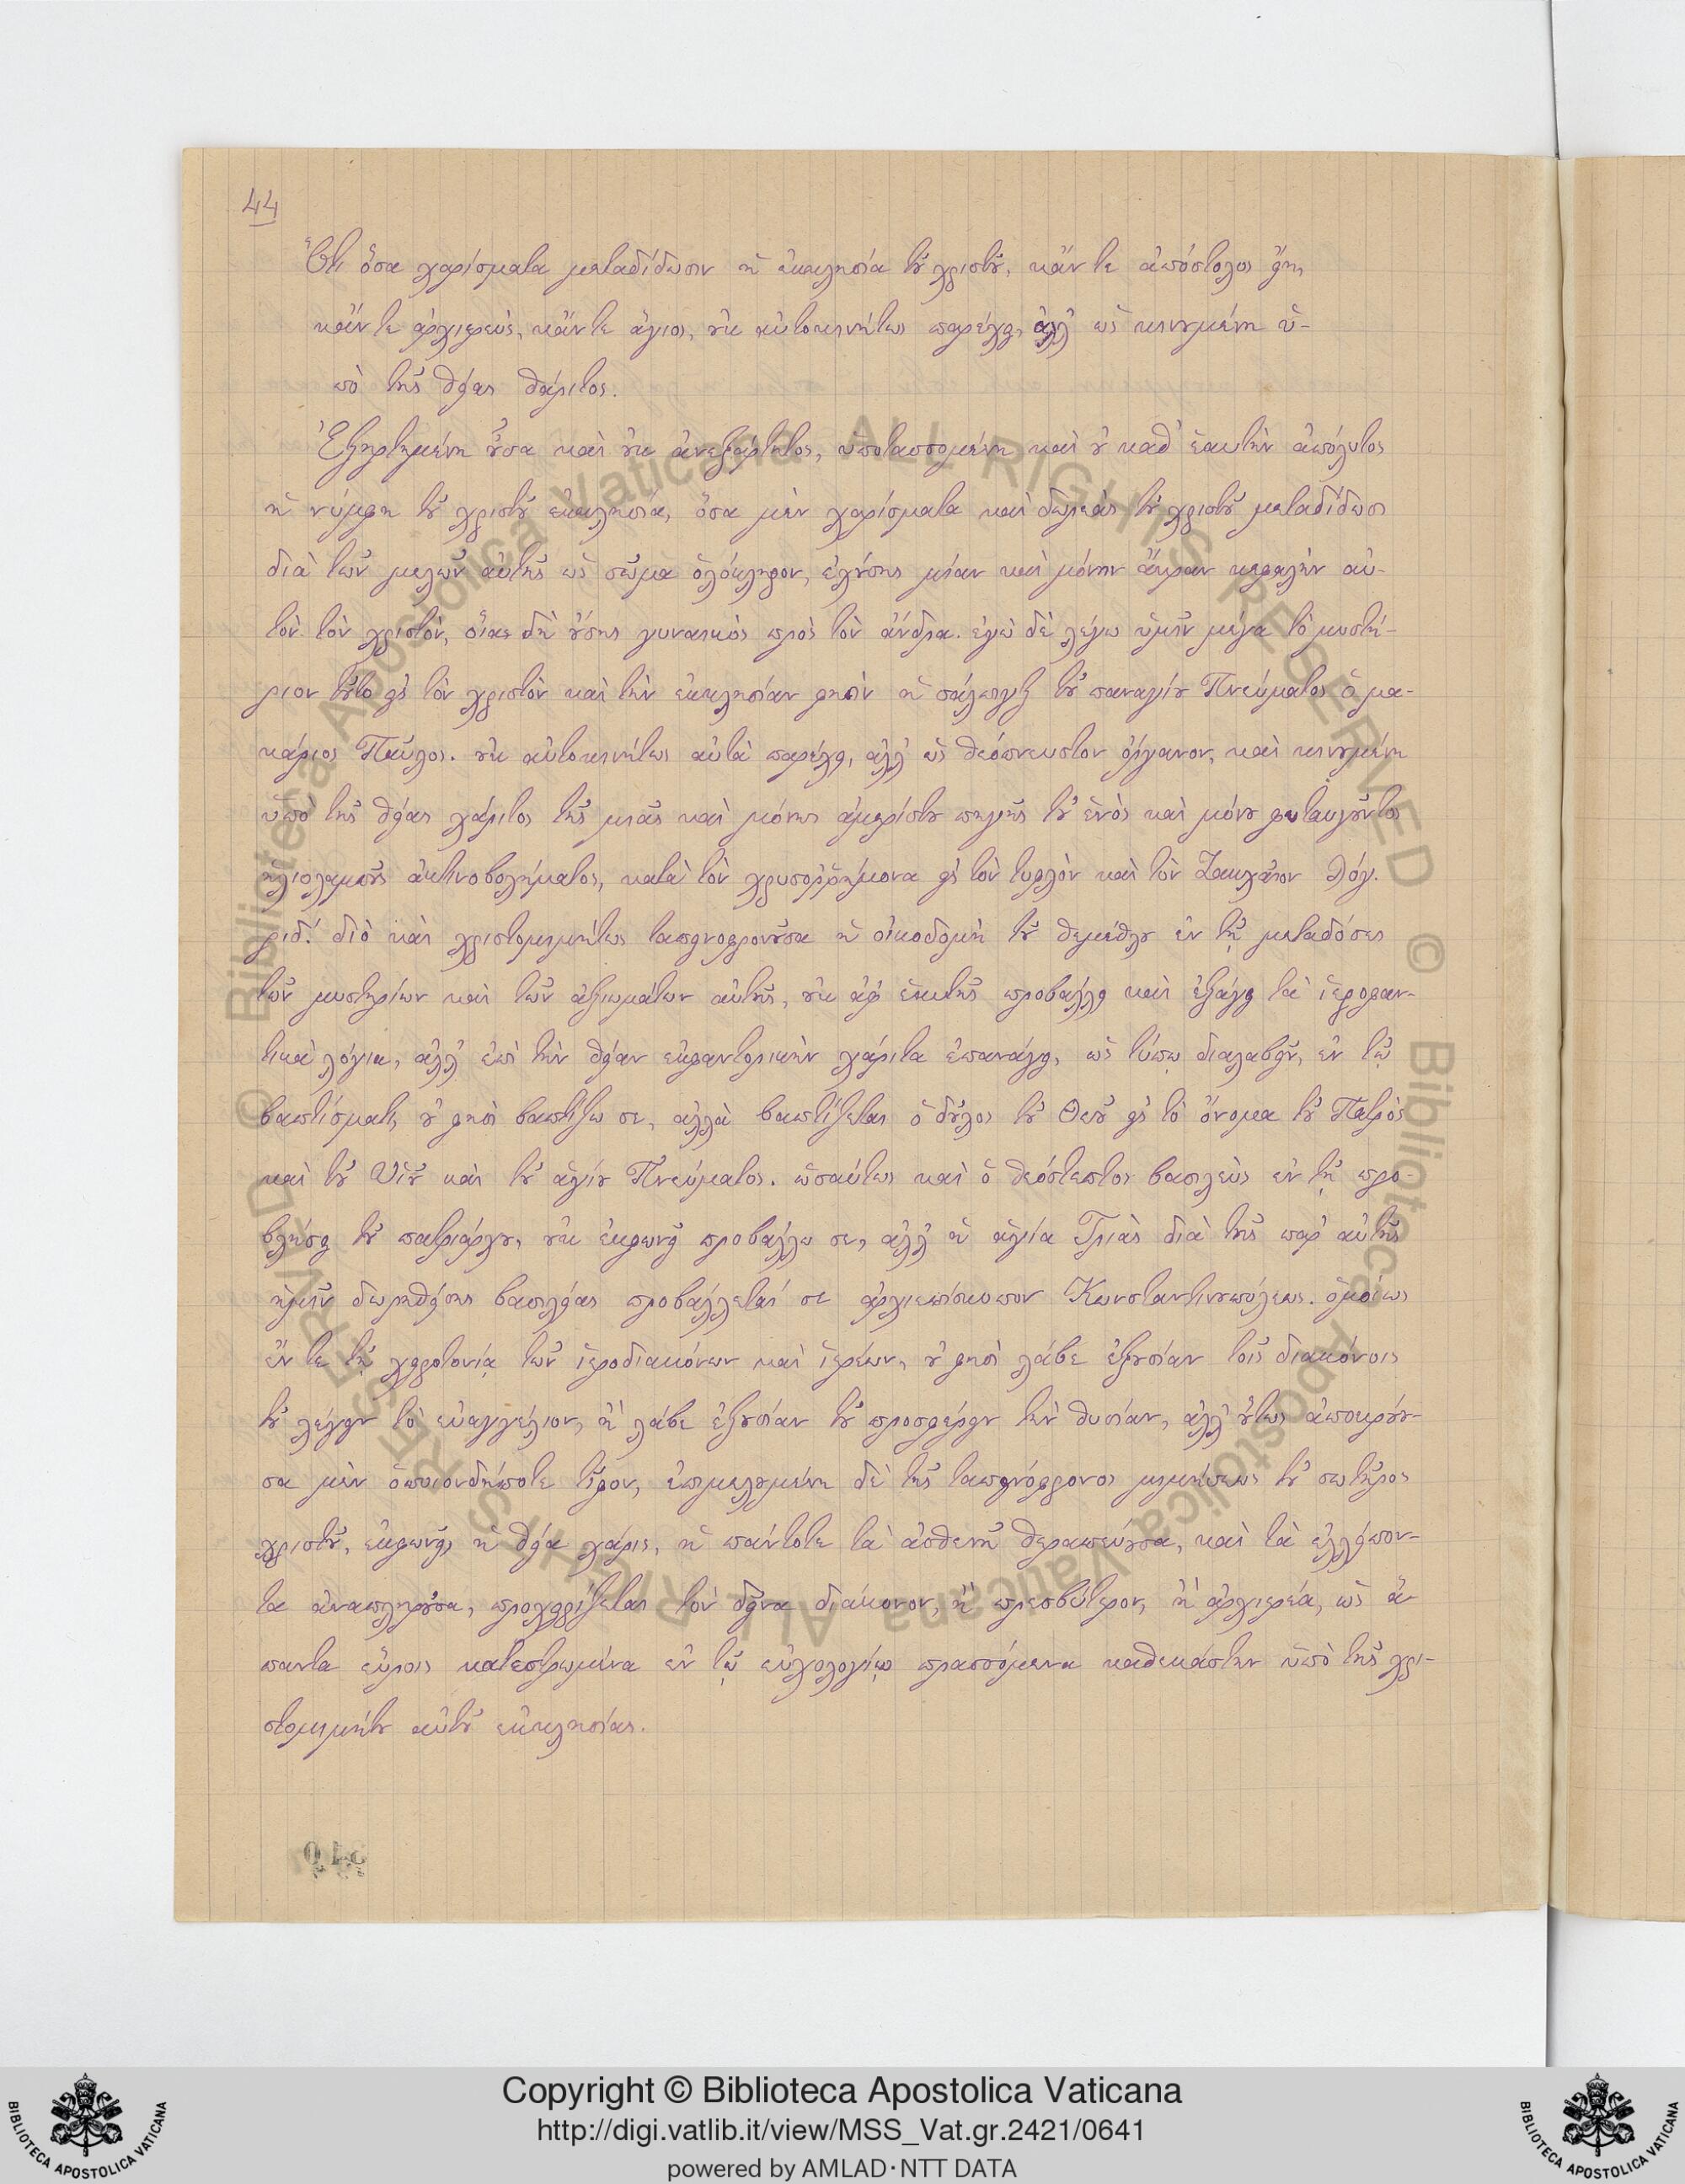 44
Ὅτι ὅσα χαρίσματα μεταδίδωσιν ἡ ἐκκλησία τοῦ χριστοῦ, κἄν τε ἀπόστολος εἴη,
κἄν τε ἀρχιερεὺς, κἄν τε ἅγιος, οὐκ αὐτοκινήτως παρέχει, ἀλλ' ὡς κινουμένη ὑ-
πὸ τῆς θείας χάριτος.
Ἐξηρτημένη οὖσα καὶ οὐκ ἀνεξάρτητος, ὑποτασσομένη καὶ οὐ καθ' ἑαυτὴν ἀπόλυτος
ἡ νύμφη τοῦ χριστοῦ ἐκκλησία, ὅσα μὲν χαρίσματα καὶ δωρεὰς τοῦ χριστοῦ μεταδίδωσι
διὰ τῶν μελῶν αὐτῆς ὡς σῶμα ὁλόκληρον, ἐχούσης μίαν καὶ μόνην ἄκραν κεφαλὴν αὐ-
τὸν τὸν χριστὸν, οἵας δὴ οὔσης γυναικὸς πρὸς τὸν ἄνδρα. ἐγὼ δὲ λέγω ὑμῖν μέγα τὸ μυστή-
ριον τοῦτο εἰς τὸν χριστὸν καὶ τὴν ἐκκλησίαν φησὶν ἡ σάλπιγξ τοῦ παναγίου Πνεύματος ὁ μα-
κάριος Παῦλος. οὐκ αὐτοκινήτως αὐτὰ παρέχει, ἀλλ' ὡς θεόπνευστον ὄργανον, καὶ κινουμένη
ὑπὸ τῆς θείας χάριτος τῆς μιᾶς καὶ μόνης ἀμερίστου πηγῆς τοῦ ἑνὸς καὶ μόνου φωταυγοῦντος
ἡλιολαμποῦς ἀκτινοβολήματος, κατὰ τὸν χρυσοῤῥήμονα εἰς τὸν τυφλὸν καὶ τὸν Ζακχαῖον λόγ.
ριδ'. διὸ καὶ χριστομιμήτως ταπεινοφρονοῦσα ἡ οἰκοδομὴ τοῦ θεμεθλίου ἐν τῇ μεταδόσει
τῶν μυστηρίων καὶ τῶν ἀξιωμάτων αὐτῆς, οὐκ ἀφ' ἑαυτῆς προβάλλει καὶ ἐξάγει τὰ ἱεροφαν-
τικὰ λόγια, ἀλλ' ἐπὶ τὴν θείαν ἐκφαντορικὴν χάριτα ἐπανάγει, ὡς τύπῳ διαλαβεῖν, ἐν τῷ
βαπτίσματι, οὐ φησὶ βαπτίζω σε, ἀλλὰ βαπτίζεται ὁ δοῦλος τοῦ Θεοῦ εἰς τὸ ὄνομα τοῦ Πατρὸς
καὶ τοῦ Υἱοῦ καὶ τοῦ ἁγίου Πνεύματος. ὡσαύτως καὶ ὁ θεόστεπτος βασιλεὺς ἐν τῇ προ-
βλήσει τοῦ πατριάρχου, οὐκ ἐκφωνεῖ προβάλλω σε, ἀλλ' ἡ ἁγία Τριὰς διὰ τῆς παρ' αὐτῆς
ἡμῖν δωρηθείσης βασιλείας προβάλλεταί σε ἀρχιεπίσκοπον Κωνσταντινουπόλεως. ὁμοίως
ἔν τε τῇ χειροτονίᾳ τῶν ἱεροδιακόνων καὶ ἱερέων, οὐ φησὶ λάβε ἐξουσίαν τοῖς διακόνοις
τοῦ λέγειν τὸ εὐαγγέλιον, ἢ λάβε ἐξουσίαν τοῦ προσφέρειν τὴν θυσίαν, ἀλλ' οὕτως ἀποκρού-
σα μὲν ὁποιονδήποτε τῦφον, ἐπιμελουμένη δὲ τῆς ταπεινόφρονος μιμήσεως τοῦ σωτῆρος
χριστοῦ, ἐκφωνεῖ, ἡ θεία χάρις, ἡ πάντοτε τὰ ἀσθενῆ θεραπεύουσα, καὶ τὰ ἐλλείπον-
τα ἀναπληροῦσα, προχειρίζεται τὸν δεῖνα διάκονον, ἢ πρεσβύτερον, ἢ ἀρχιερέα, ὡς ἅ-
παντα εὕροις κατεστρωμένα ἐν τῷ εὐχολογίῳ πρασσόμενα καθεκάστην ὑπὸ τῆς χρι-
στομιμήτου αὐτοῦ ἐκκλησίας.
© Biblioteca Apostolica Vaticana ALL RIGHTS RESERVED © Biblioteca Apostolica Vaticana ALL RIGHTS RESERVED
BIBLIOTECA APOSTOLICA VATICANA
Copyright © Biblioteca Apostolica Vaticana
http://digi.vatlib.it/view/MSS_Vat.gr.2421/0641
powered by AMLAD·NTT DATA
BIBLIOTECA APOSTOLICA VATICANA